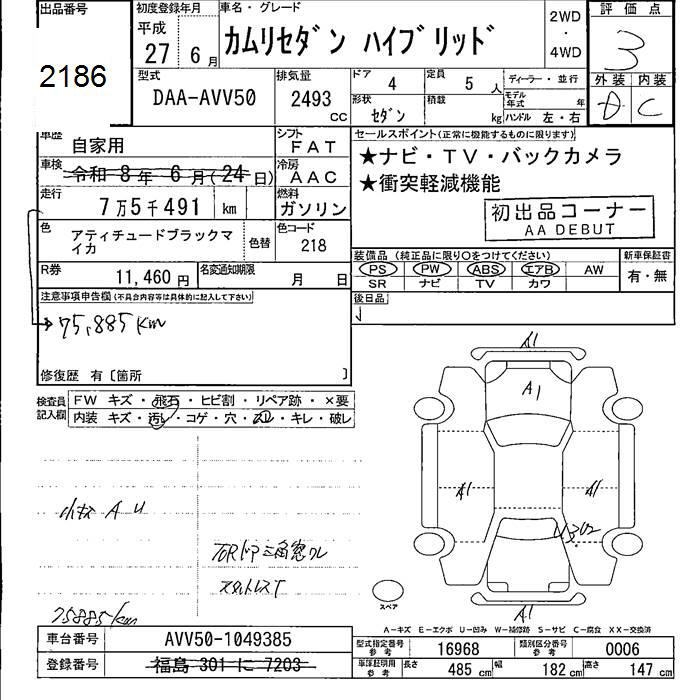 出品番号
2186
初度登録年月
平成
27年 6月
車名・グレード
カムリセダン ハイブリッド
2WD
・
4WD
評価点
3
外装 内装
D C
型式
DAA-AVV50
排気量
2493 CC
ドア 4
定員 5 人
ディーラー・並行
形状 セダン
積載 kg
モデル年式 年
ハンドル 左・右
車歴 自家用
シフト FAT
車検 令和 8年 6月(24日)
冷房 AAC
走行 7万5千491 km
燃料 ガソリン
色 アティチュードブラックマイカ
色替
色コード 218
R券 11,460円
名変通知期限 月 日
セールスポイント(正常に機能するものに限ります)
★ナビ・TV・バックカメラ
★衝突軽減機能
初出品コーナー
AA DEBUT
装備品 (純正品に限り○をつけてください)
PS PW ABS エアB AW
SR ナビ TV カワ
新車保証書
有・無
後日品
注意事項申告欄(不具合内容等は具体的に記入して下さい)
75,885km
修復歴 有〔箇所 〕
検査員記入欄
FW キズ・飛石・ヒビ割・リペア跡・×要
内装 キズ・汚レ・コゲ・穴・スレ・キレ・破レ
小キズ A U
TOR ドア三角窓ワレ
スタットレスT
75885km
A1
A1
A1
A1
A1
スペア
A-キズ E-エクボ U-凹み W-補修跡 S-サビ C-腐食 XX-交換済
車台番号 AVV50-1049385
登録番号 福島 301 に 7203
型式指定番号 参考 16968
類別区分番号 参考 0006
車庫証明用 参考
長さ 485 cm
幅 182 cm
高さ 147 cm